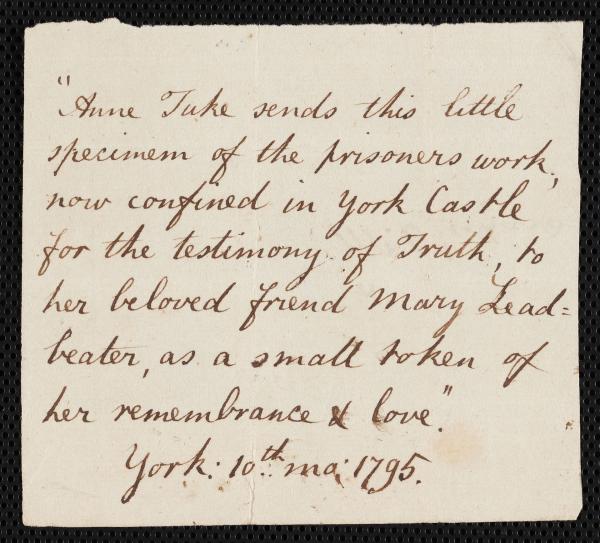 "Anne Tuke sends this little
specimem of the prisoners work,
now confined in York Castle
for the testimony of Truth, to
her beloved friend Mary Lead=
beater, as a small token of
her remembrance & love."
York: 10th mo: 1795.